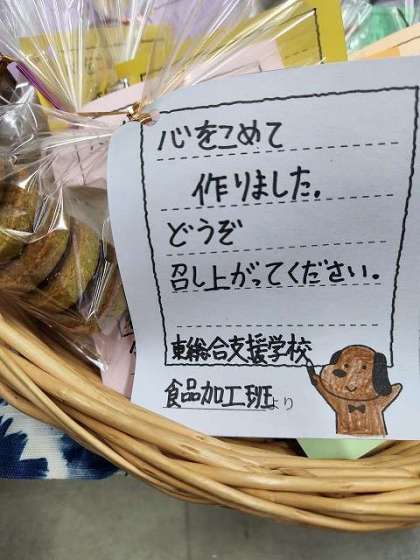 心をこめて
作りました。
どうぞ
召し上がってください。
東総合支援学校
食品加工班より